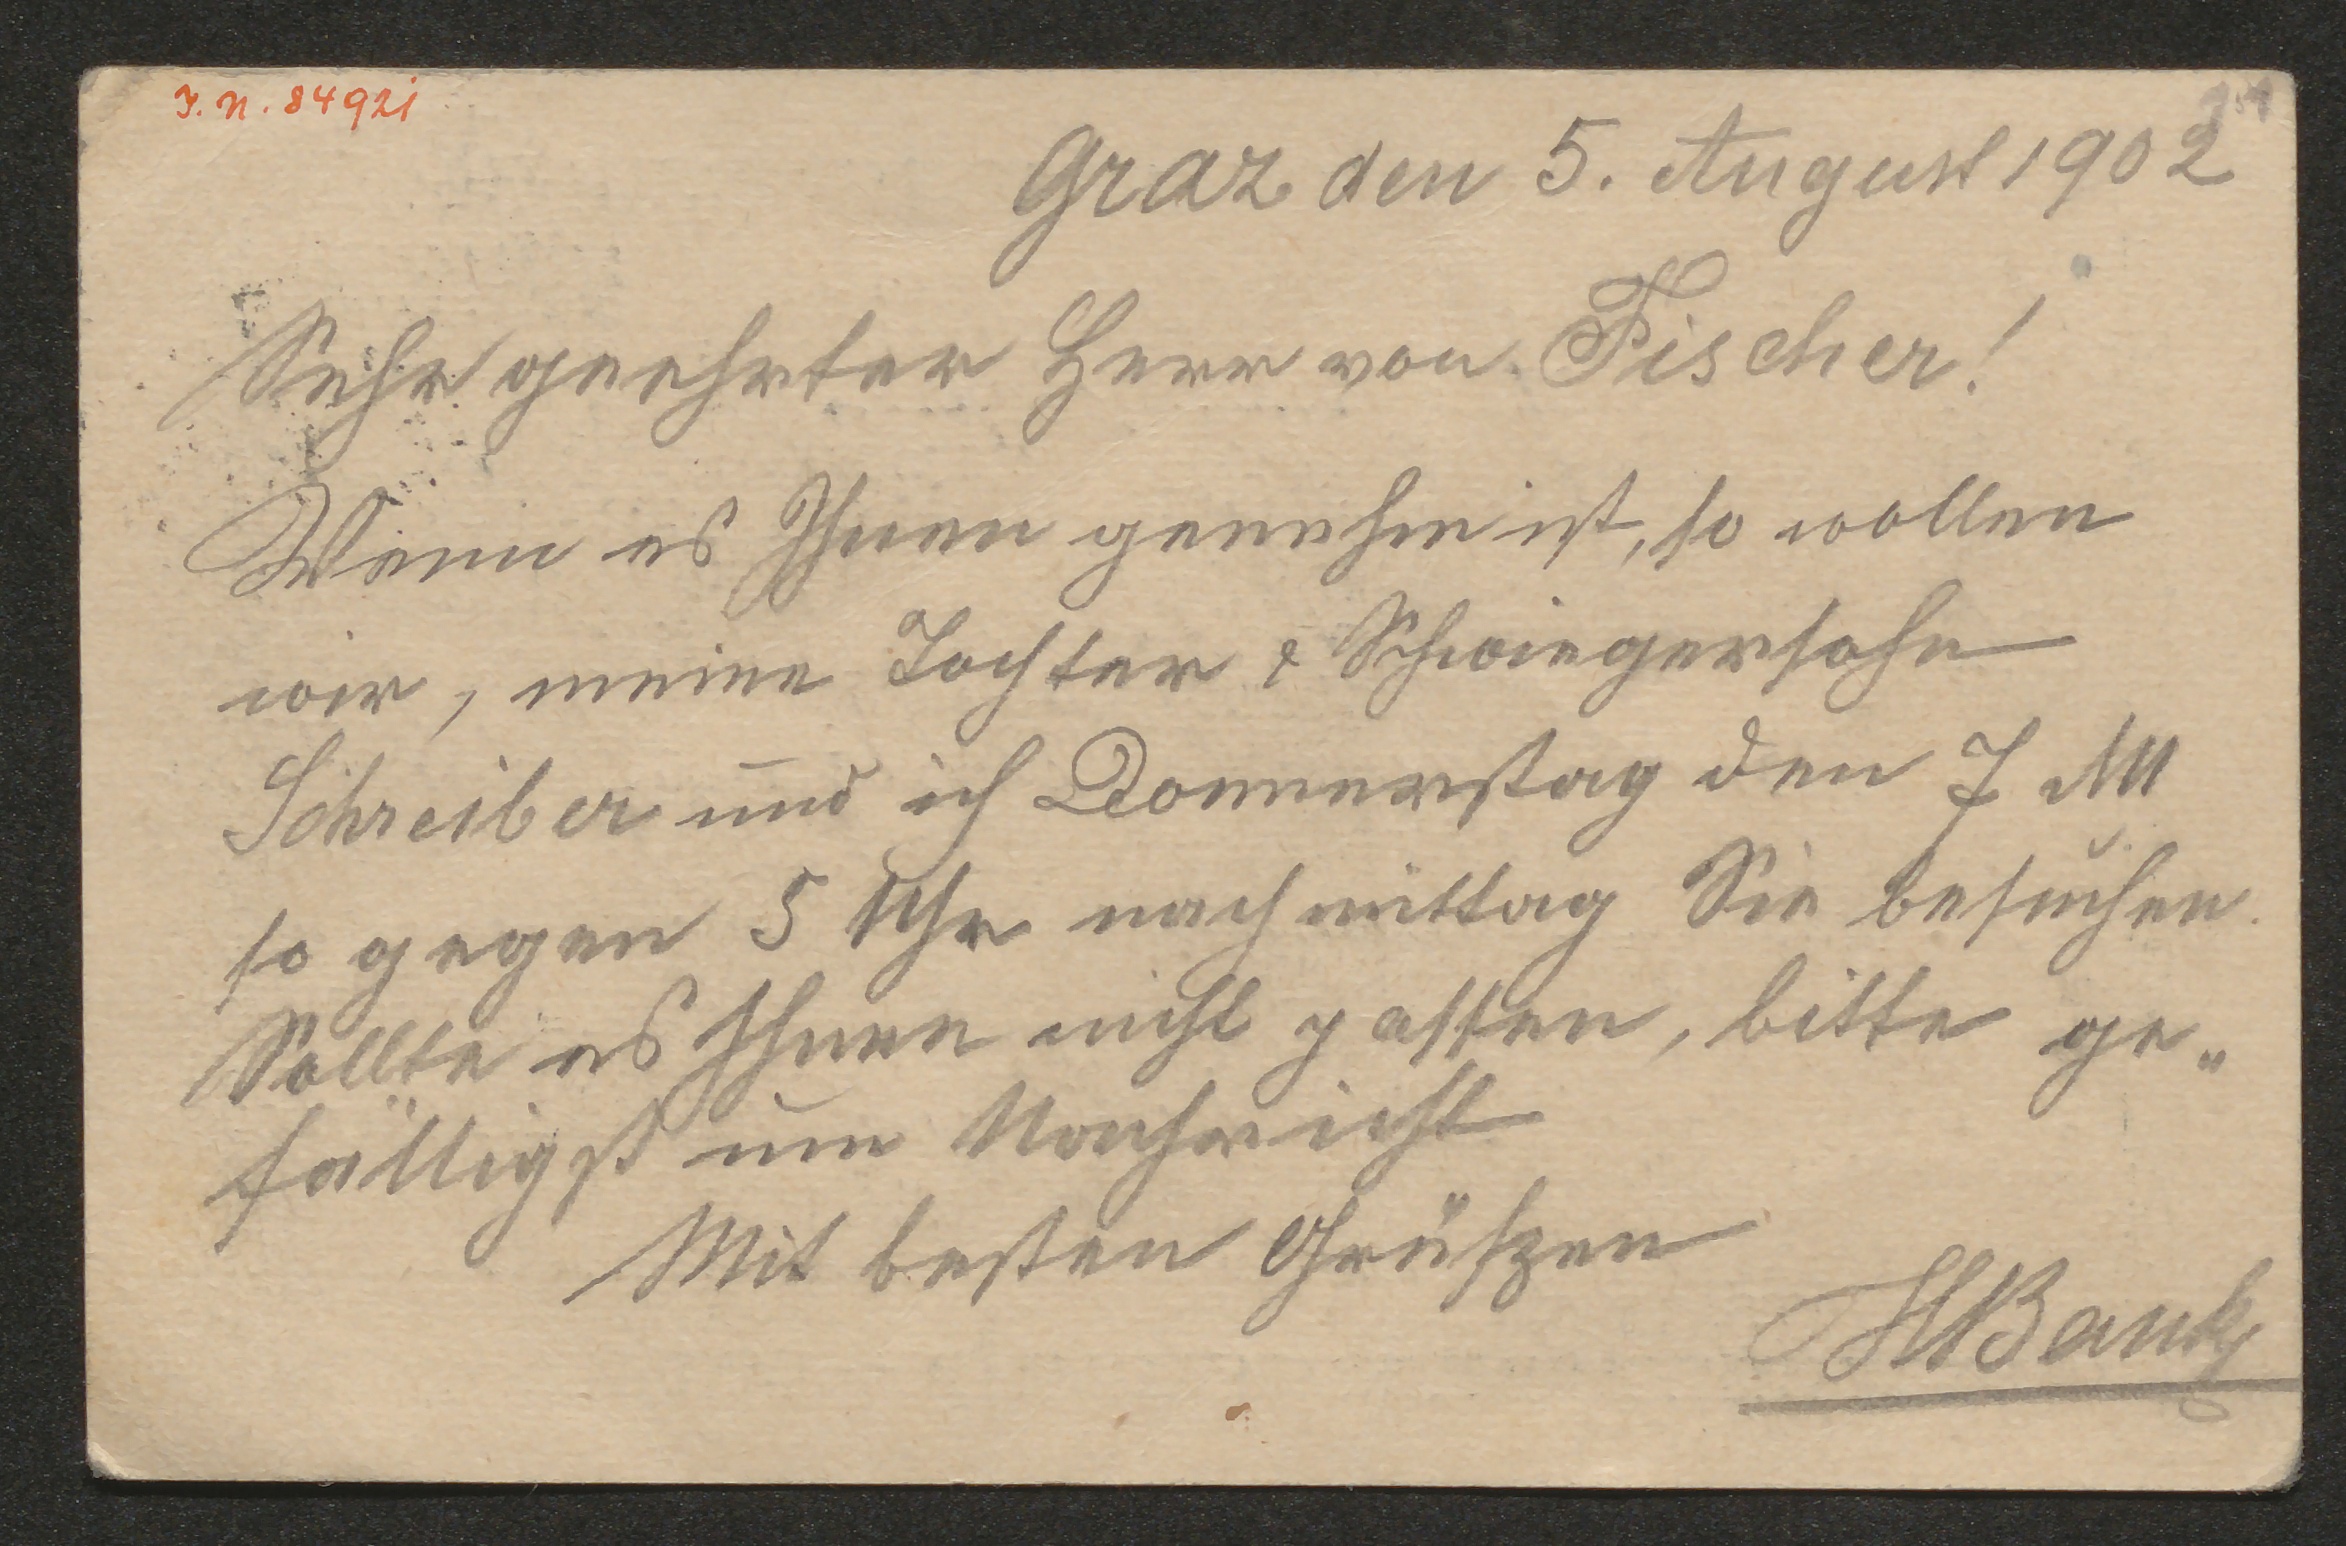 I. N. 84921
Graz den 5. August 1902
Sehr geehrter Herr von Fischer!
Wenn es Ihnen genehm ist, so wollen
wir, meine Tochter & Schwiegersohn
Schreiber und ich Donnerstag den 7
so gegen 5 Uhr nachmittag Sie besuchen.
Sollte es Ihnen nicht passen, bitte ge„
fälligst um Nachricht
Mit besten Grüßen